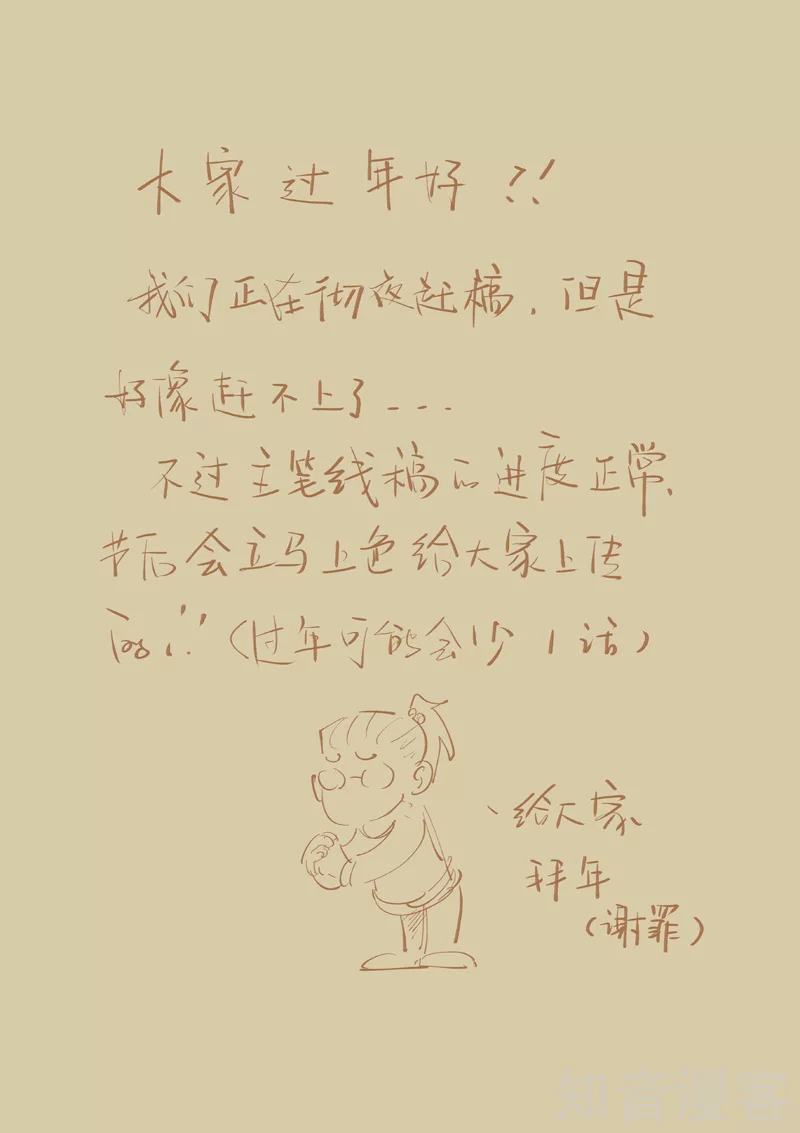 大家过年好!!
我们正在彻夜赶稿,但是
好像赶不上了---
不过主笔线稿的进度正常,
节后会立马上色给大家上传
的!!(过年可能会少1话)
、给大家
拜年
(谢罪)
知音漫客